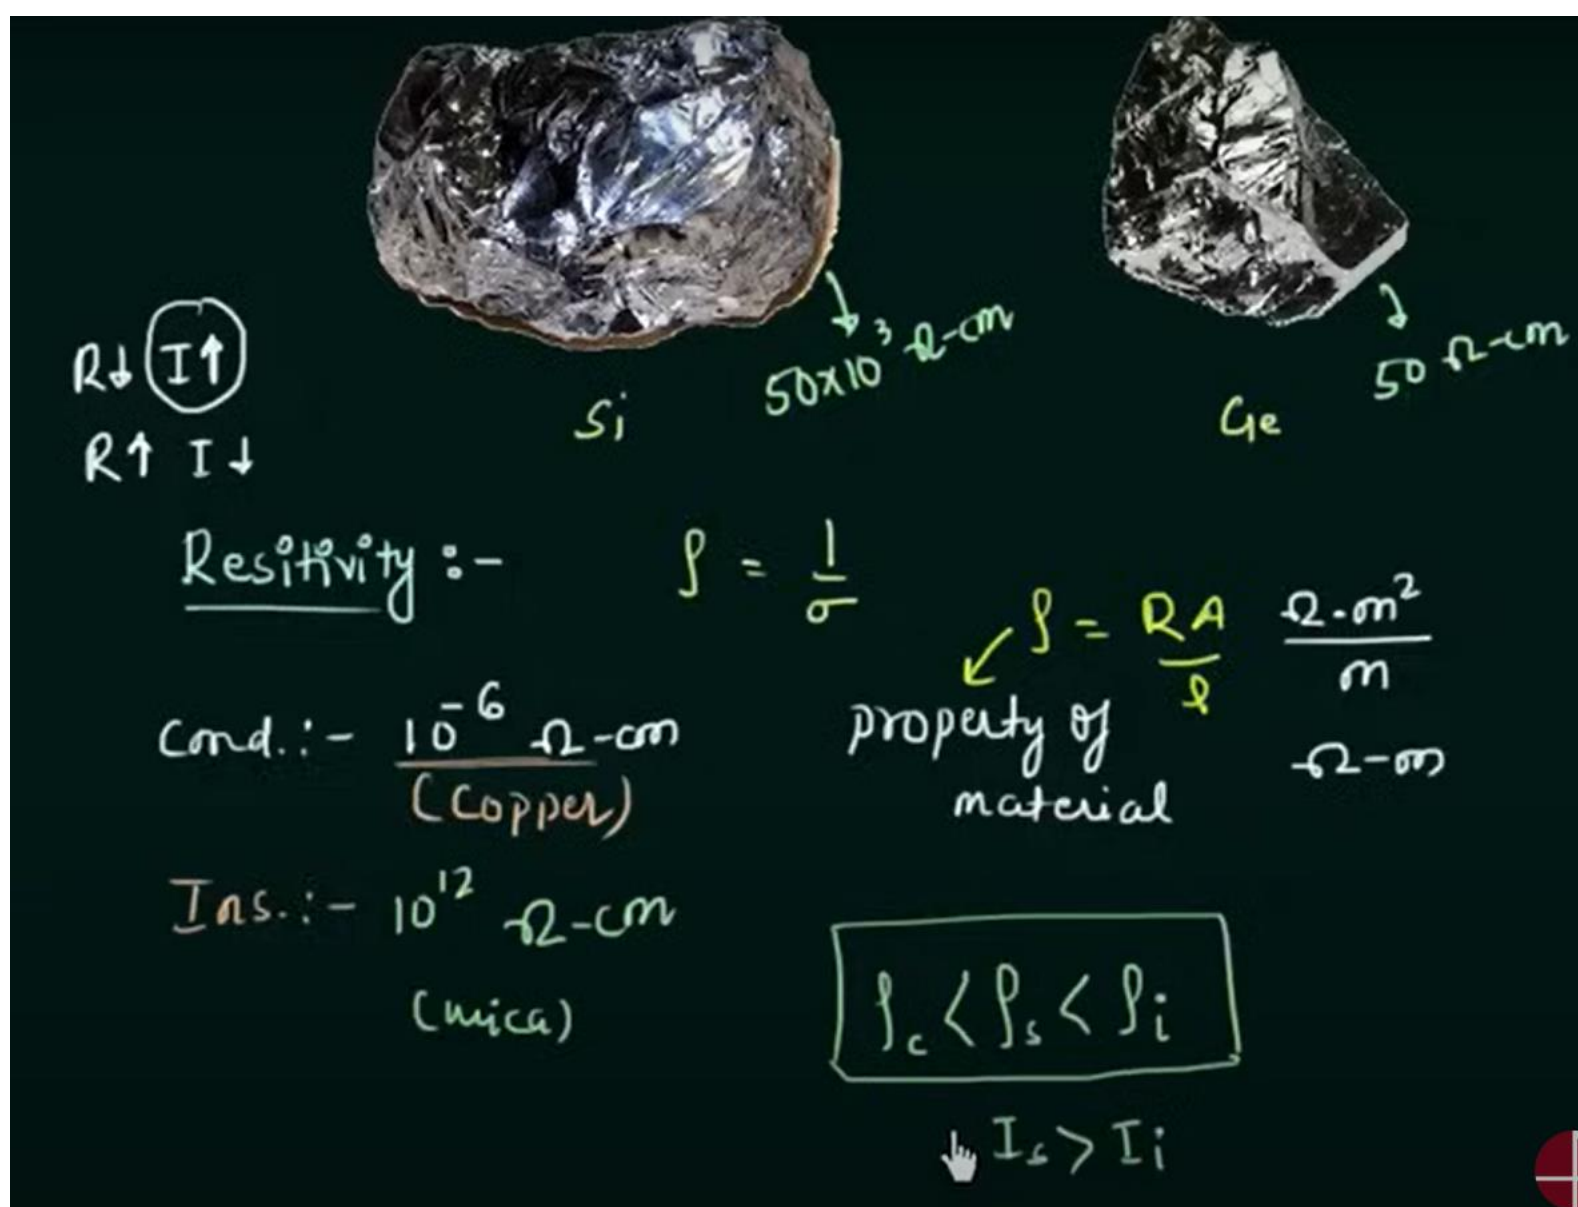 R↓ I↑
R↑ I↓
50×10³ Ω-cm
Si
50 Ω-cm
Ge
Resitivity :-
ρ = 1/σ
ρ = RA/l
Ω·m²/m
Ω-m
property of
material
Cond. :- 10⁻⁶ Ω-cm
(Copper)
Ins. :- 10¹² Ω-cm
(mica)
ρc < ρs < ρi
Is > Ii